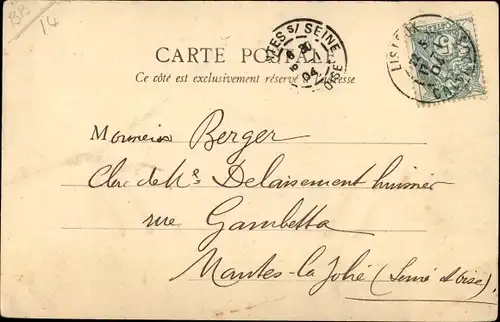 BB
14
CARTE POSTALE
Ce côté est exclusivement réservé à l'adresse
MANTES S/ SEINE
04
OISE
LISIEUX
CALVADOS
04
5
Monsieur Berger
Clerc de Me Delaisement huissier
rue Gambetta
Mantes-la-Jolie (Seine et Oise),